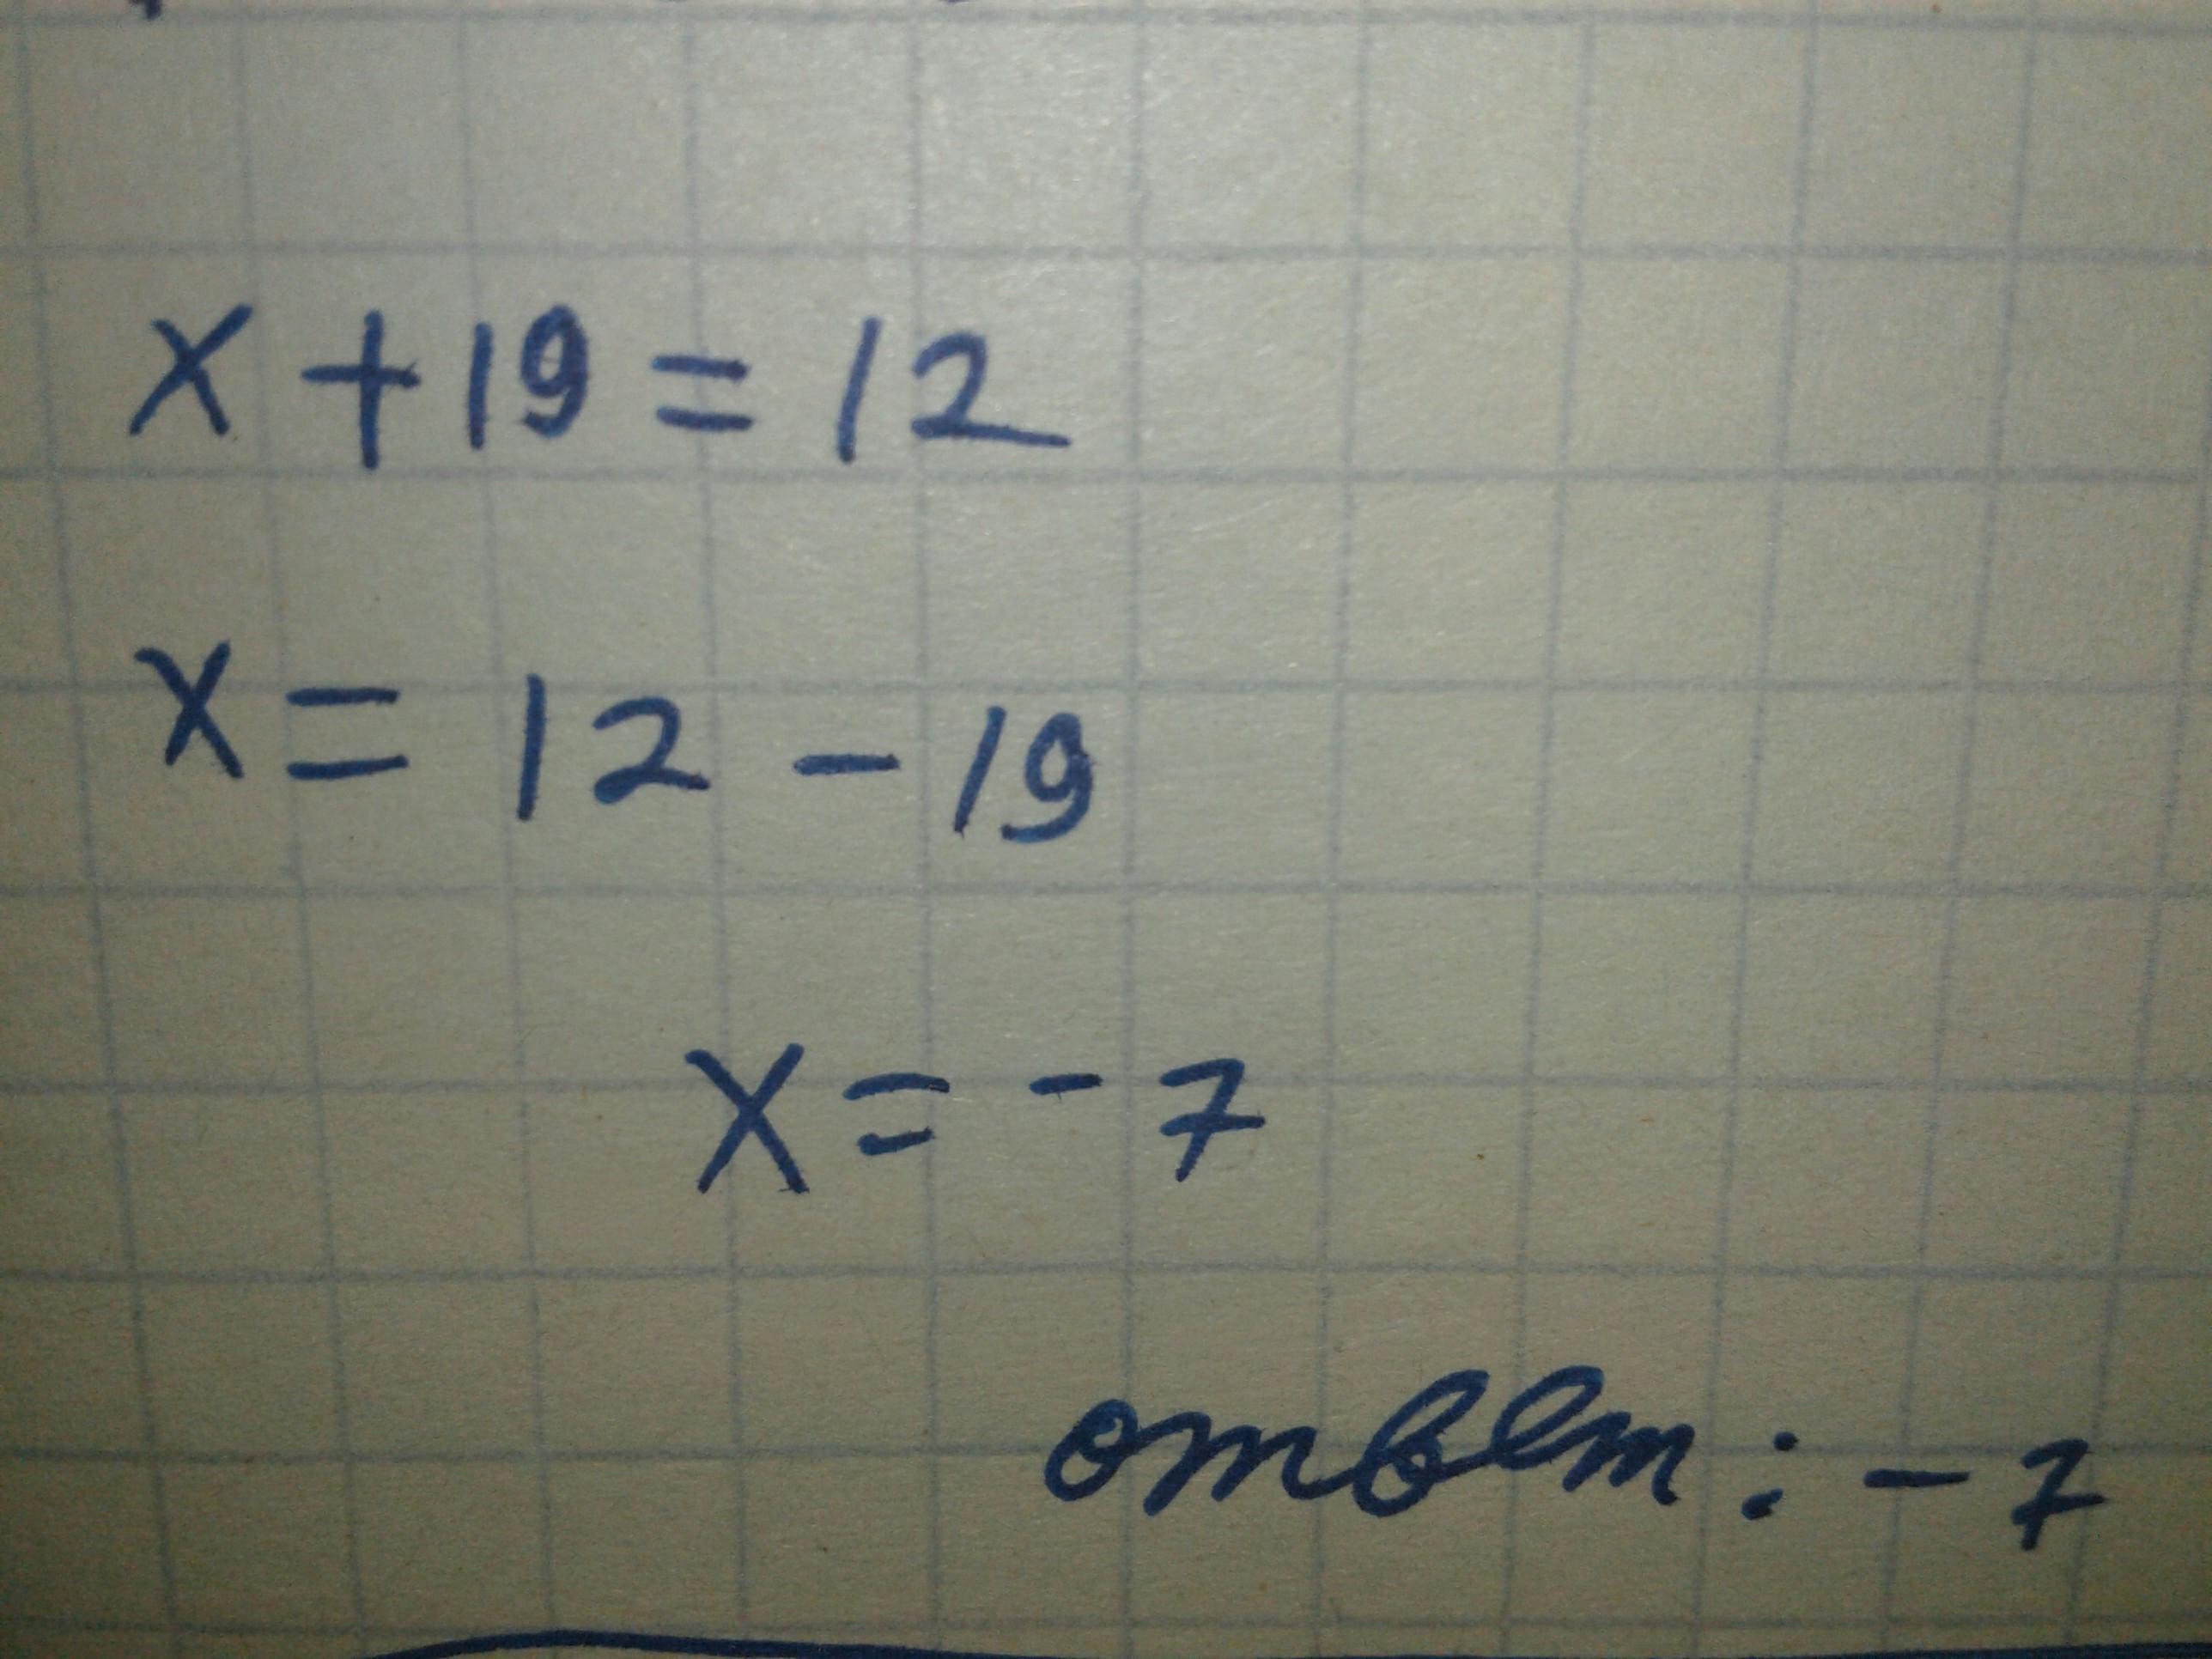 x + 19 = 12
x = 12 - 19
x = - 7
ответ : - 7